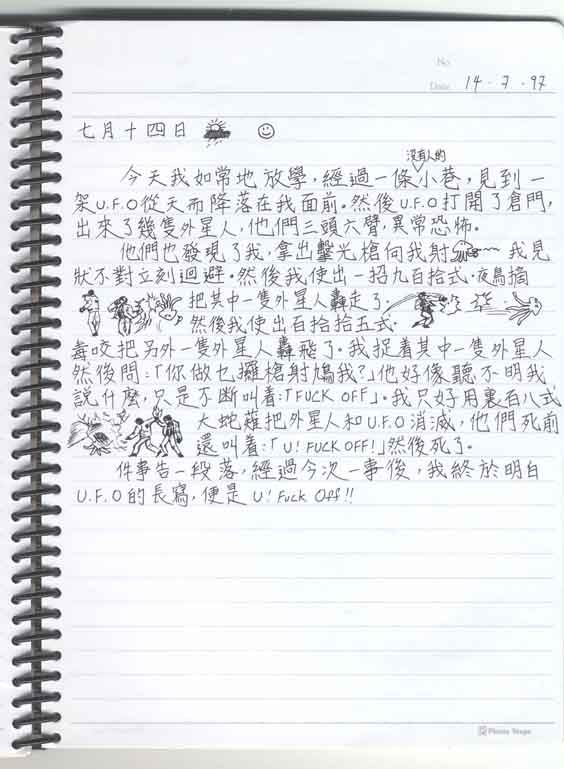 No
Date 14.7.97
七月十四日
沒有人的
今天我如常地放學，經過一條小巷，見到一
架U.F.O從天而降落在我面前。然後U.F.O打開了倉門，
出來了幾隻外星人，他們三頭六臂，異常恐怖。
他們也發現了我，拿出擊光槍向我射 我見
狀不對立刻迴避。然後我使出一招九百拾式．夜鳥摘
把其中一隻外星人轟走了．
然後我使出百拾拾五式．
毒咬把另外一隻外星人轟飛了。我捉着其中一隻外星人
然後問：「你做乜攞槍射鳩我？」他好像聽不明我
說什麼，只是不斷叫着：「FUCK OFF」。我只好用裏百八式
大蛇薙把外星人和U.F.O消滅，他們死前
還叫着：「U! FUCK OFF!」然後死了。
件事告一段落，經過今次一事後，我終於明白
U.F.O的長寫，便是U! Fuck Off!!